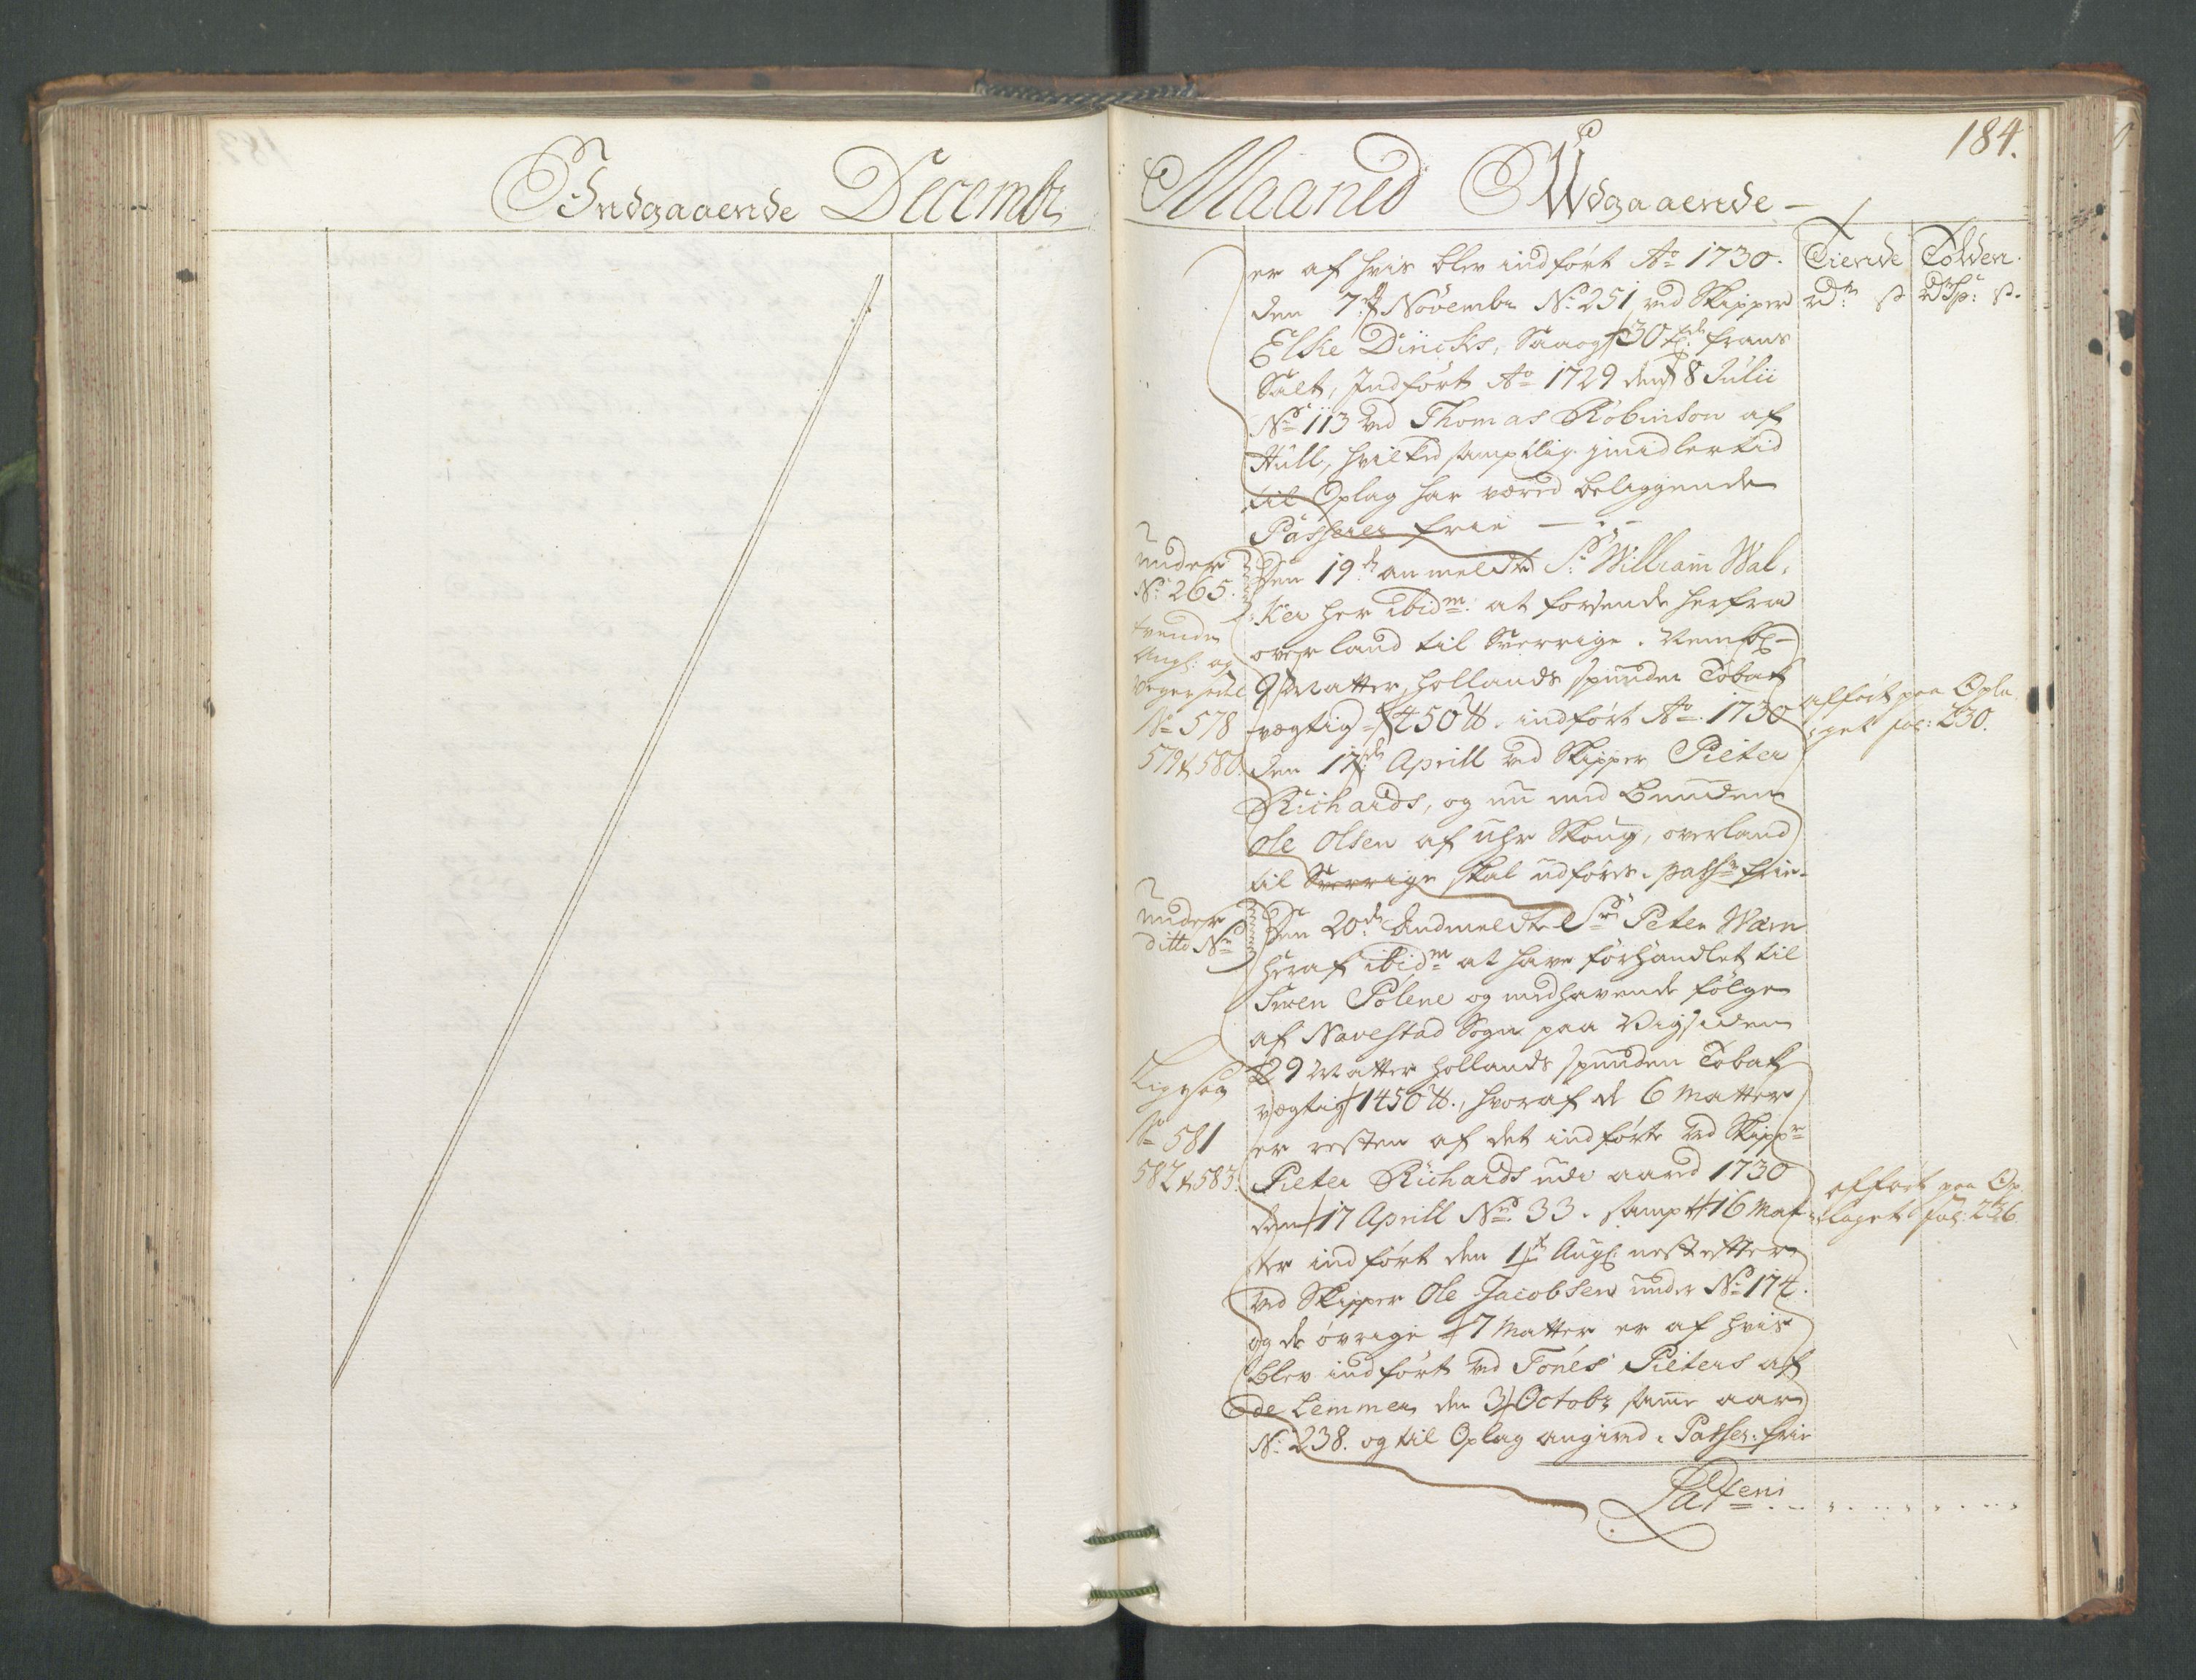 Indgaaende Decembr
Maaned Udgaaende
184.
er af hvis blev indført Ao 1730.
den 7de Novembr No 251 ved Skipper
Elke Dircks, Saaog 30 frans
Salt, Indført Ao 1729 den 8 Julii
No 113 ved Thomas Robinson af
Hull, hvilked samptlig imidlertid
til Oplag har væred beliggende
Passerer frie
Tiende Tolden.
under
No 265.
tvende
Angl: og
No 578
579 & 580.
Den 19de anmeldte Sr William Wal-
ker her ibidm at forsende herfra
over land til Sverrige.
9 Matter hollands spunden Tobak
vægtig 450 ℔. indført Ao 1730
den 17de Aprill ved Skipper Pieter
Richards, og nu med Bunden
Ole Olsen af Skoug, overland
til Sverrige skal udføres. passr frie.
afført paa Opla-
get fol: 230.
under
ditto No
Ligesaa
No 581
582 & 583.
Den 20de Andmeldte Sr Peter Wærn
heraf ibidm at have forhandlet til
Swen Polene og medhavende følge
af Navestad Sogn paa Vigsiden
29 Matter hollands spunden Tobak
vægtig 1450 ℔., hvoraf de 6 Matter
er resten af det indførte ved Skippr
Pieter Richards udi aared 1730
den 17 Aprill No 33. sampt 16 Mat-
ter indført den 1te Aug: nestefter
ved Skipper Ole Jacobsen under No 174.
og de øvrige 7 Matter er af hvis
blev indført ved Tones Pieters af
de Lemmer den 3 Octobr samme aar
No 238. og til Oplag angived. Passer: frie
afført paa Op-
laget fol: 236.
Lateri